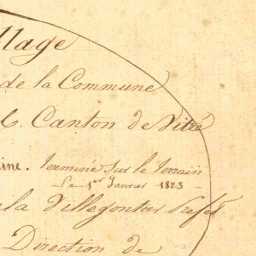 llage
de la Commune
C. Canton de Vitré
ine. Terminée sur le terrain
Le 1er Janvier 1823
la Villegontier Préfet
Direction de